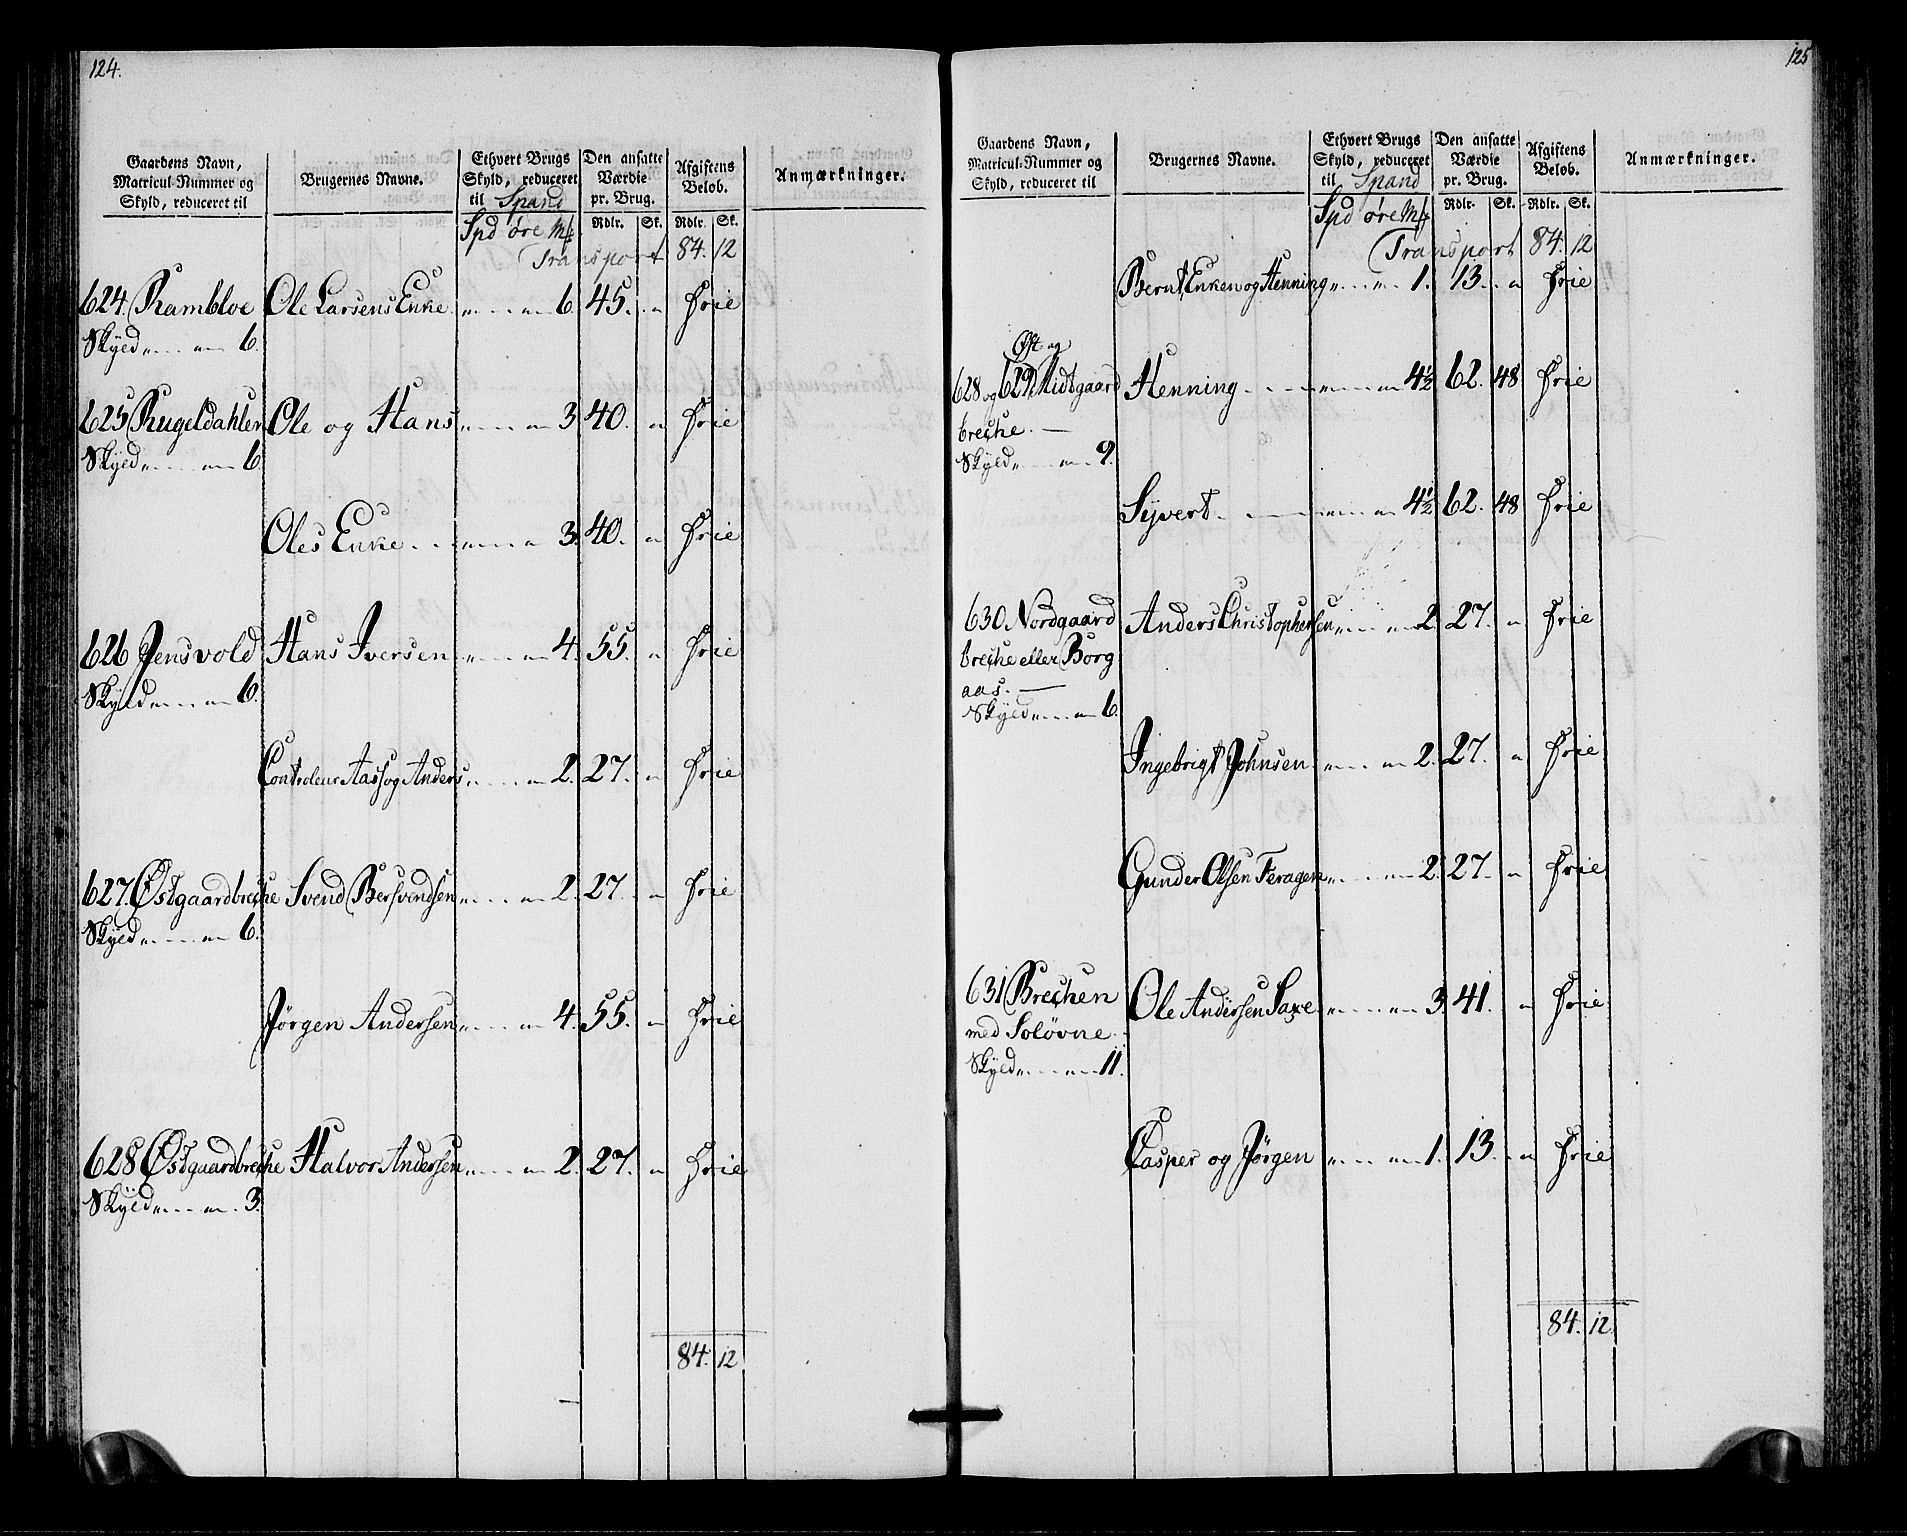 124.
Gaardens Navn,
Matricul-Nummer og
Skyld, reduceret til
Brugernes Navne.
Ethvert Brugs
Skyld, reduceret
til Spand
Den ansatte
Værdie
pr. Brug.
Afgiftens
Beløb.
Anmærkninger.
Spd øre Mk
Rdlr. Sk. Rdlr. Sk.
Transport 84. 12
624. Rambloe Ole Larsens Enke „ „ 6. 45. „ Frie
Skyld „ „ 6.
625 Kugeldahlen Ole og Hans „ „ 3. 40. „ Frie
Skyld „ „ 6.
Oles Enke „ „ 3. 40. „ Frie
626 Jensvold Hans Iversen „ „ 4. 55. „ Frie
Skyld „ „ 6.
Controleur Aas og Anders „ „ 2. 27. „ Frie
627. Østgaardbreche Svend Bersvendsen „ „ 2. 27. „ Frie
Skyld „ „ 6.
Jørgen Andersen „ „ 4. 55. „ Frie
628 Østgaardbreche Halvor Andersen „ „ 2. 27. „ Frie
Skyld „ „ 3.
84. 12
125
Gaardens Navn,
Matricul-Nummer og
Skyld, reduceret til
Brugernes Navne.
Ethvert Brugs
Skyld, reduceret
til Spand
Den ansatte
Værdie
pr. Brug.
Afgiftens
Beløb.
Anmærkninger.
Spd øre Mk
Rdlr. Sk. Rdlr. Sk.
Transport 84. 12
Bernt Enken og Henning „ „ 1. 13. „ Frie
Øst og
628 og 629 Midtgaard Henning „ „ 4½ 62. 48 Frie
breche.
Skyld „ „ 9.
Syvert „ „ 4½ 62. 48 Frie
630 Nordgaard Anders Christophersen „ „ 2. 27. „ Frie
breche eller Borg
aas.
Skyld „ „ 6.
Ingebrigt Johnsen „ „ 2. 27. „ Frie
Gunder Olsen Feragen „ „ 2. 27. „ Frie
631 Brechen Ole Andersen Saxe „ „ 3. 41. „ Frie
med Soløvne.
Skyld „ „ 11.
Casper og Jørgen „ „ 1. 13. „ Frie
84. 12